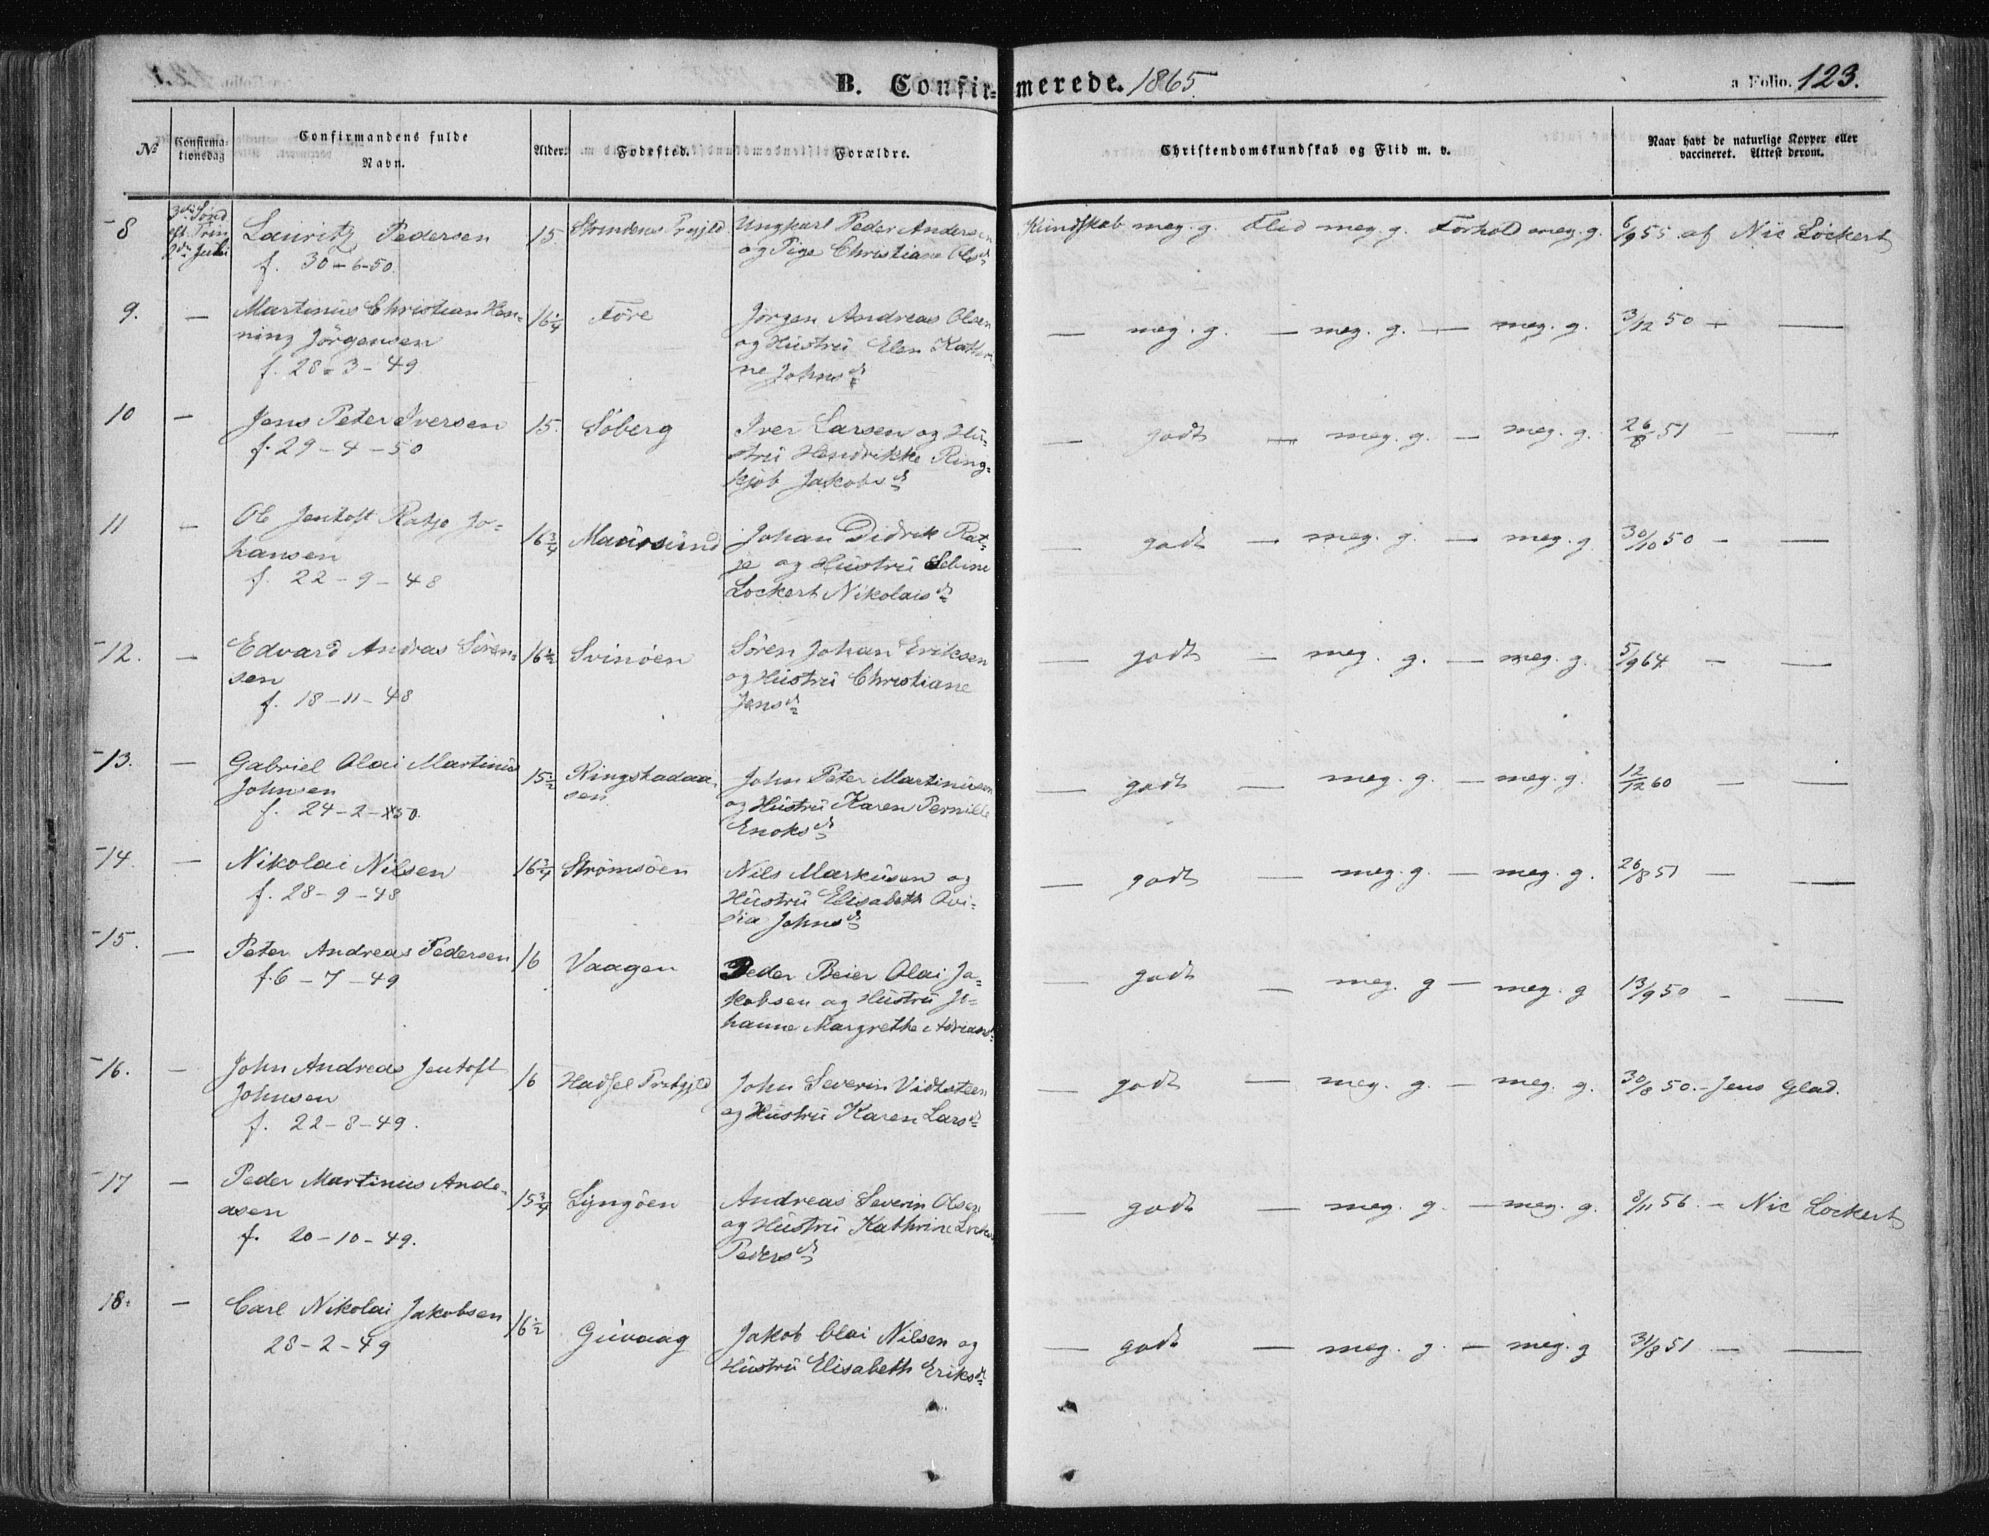 B. Confirmerede. 1865. a Folio. 123.
No Confirmationsdag Confirmandens fulde Navn. Alder. Fødested. Forældre. Christendomskundskab og Flid m. v. Naar havt de naturlige Kopper eller vaccineret. Attest derom.
8 3die Sønd Lauritz Pedersen 15 Strindens Prgjld Ungkarl Peder Andersen Kundskab meg. g. Flid meg. g. Forhold meg. g. 6/9 55 af Nic Lockert
eft. Trin
2den Juli
f. 30-6-50. og Pige Christiane Olsdr
9. — Martinus Christian Hen- 16¼ Føre Jørgen Andreas Olsen — meg. g. — meg. g. — meg. g. 3/12 50 — —
ning Jørgensen og Hustru Elen Kathri-
f. 28-3-49. ne Johnsdr
10 — Jens Peter Iversen 15. Søberg Iver Larsen og Hu- — godt — meg. g. — meg. g. 26/8 51 — —
f. 29-4-50 stru Hendrikke Ring-
kjøb Jakobsdr
11 — Ole Jentoft Ratje Jo- 16¾ Maursund Johan Didrik Rat- — godt — meg. g. — meg. g 30/10 50 — —
hansen je og Hustru
f. 22-9-48 Lockert Nikolaisdr
12. — Edvard Andreas Søren- 16½ Svinøen Søren Johan Eriksen — godt — meg. g. — meg. g. 5/9 64. — —
sen og Hustru Christiane
f. 18-11-48 Jensdr
13. — Gabriel Olai Martinus 15½ Ringstadaa- John Peter Martinusen — godt — meg. g. — meg. g. 12/12 60 — —
Johnsen sen og Hustru Karen Pernille
f. 24-2-50. Enoksdr
14 — Nikolai Nilsen 16¾ Strømsøen Nils Markusen og — godt — meg. g. — meg. g. 26/8 51 — —
f. 28-9-48 Hustru Elisabeth Ovi-
dia Johnsdr
15. — Peter Andreas Pedersen 16 Vaagen Peder Beier Olai Ja- — godt — meg. g — meg. g 13/9 50 — —
f. 6-7-49 kobsen og Hustru Jo-
hanne Margrethe Adrians-
16. — John Andreas Jentoft 16 Hadsel Prstgjld John Severin Vidtsteen — godt — meg. g. — meg. g. 30/8 50. — Jens Glad.
Johnsen og Hustru Karen Larsdr
f. 22-8-49.
17 — Peder Martinus Ande- 15¾ Lyngøen Andreas Severin Olsen — godt — meg. g. — meg. g. 3/11 56. — Nic Lockert
asen og Hustru Kathrine
f. 20-10-49. Pedersdr
18. — Carl Nikolai Jakobsen 16½ Guvaag Jakob Olai Nilsen og — godt — meg. g. — meg. g 31/8 51 — —
28-2-49 Hustru Elisabeth Eriksdr